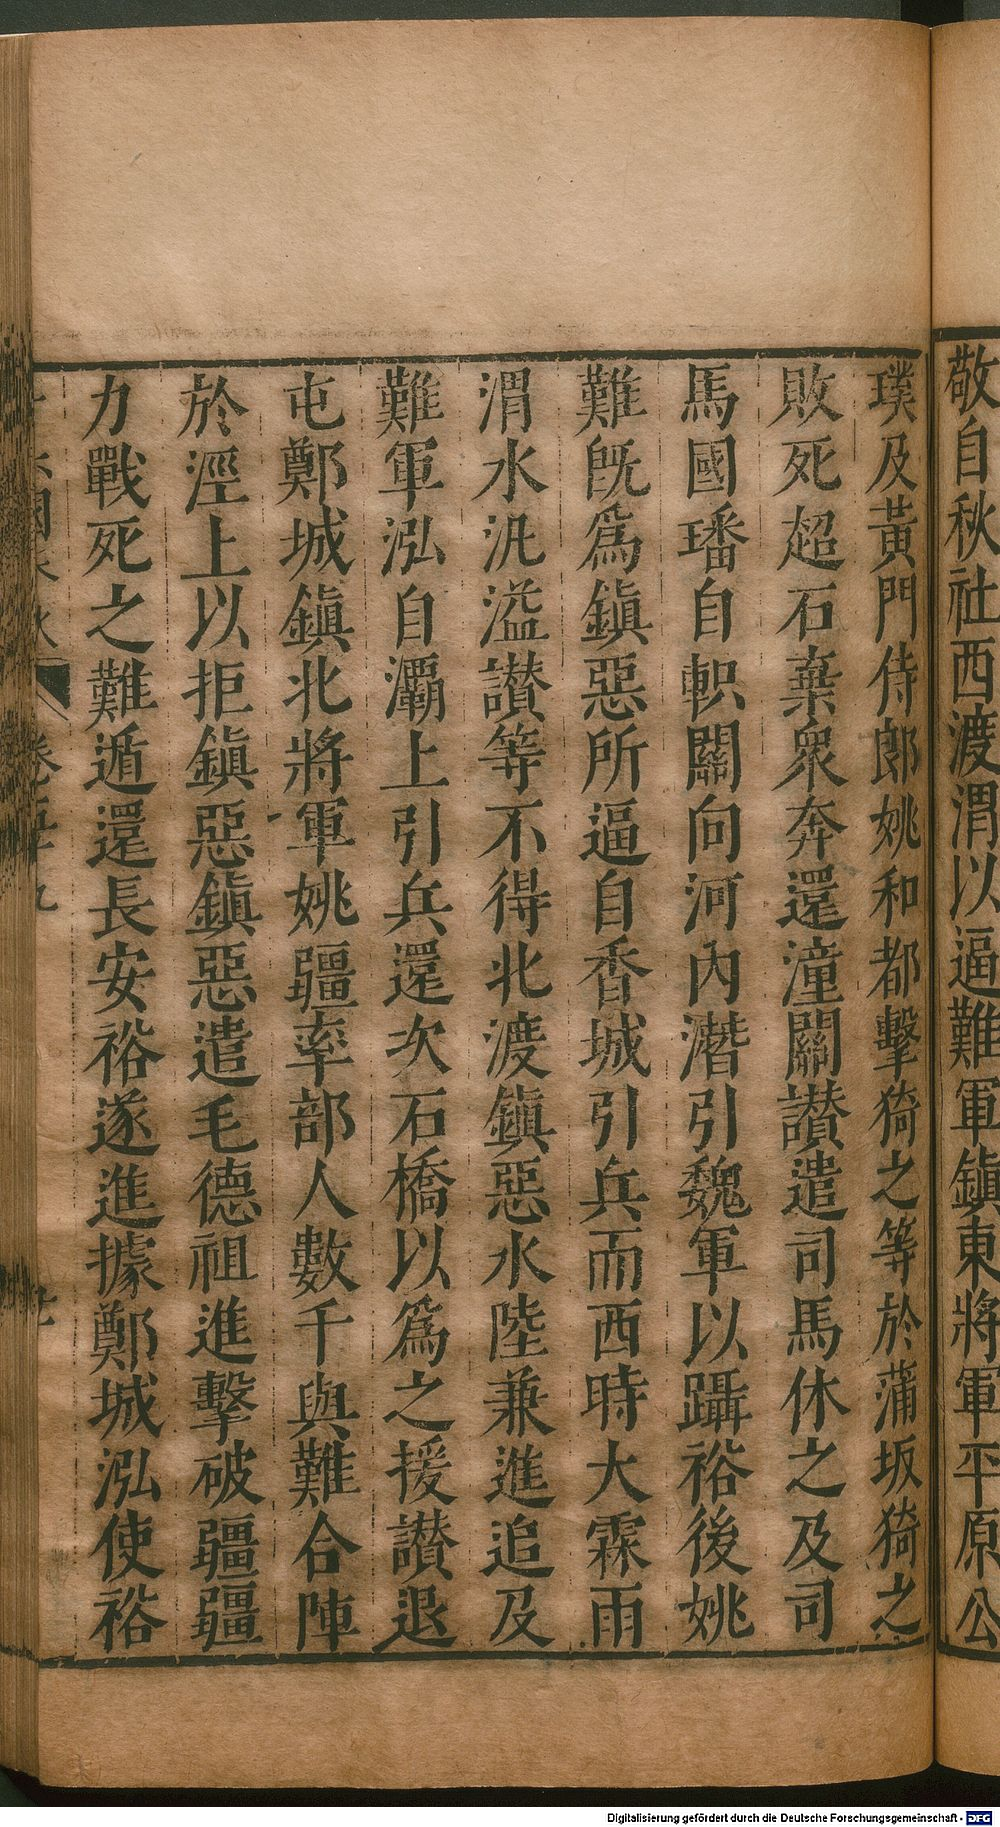 敬自秋社西渡渭以逼難軍鎮東將軍平原公
璞及黃門侍郎姚和都擊猗之等於蒲坂猗之
敗死超石棄衆奔還潼關讃遣司馬休之及司
馬國璠自軹關向河內潛引魏軍以躡裕後姚
難旣爲鎮惡所逼自香城引兵而西時大霖雨
渭水汎溢讃等不得北渡鎮惡水陸兼進追及
難軍泓自灞上引兵還次石橋以爲之援讃退
屯鄭城鎮北將軍姚疆率部人數千與難合陣
於涇上以拒鎮惡鎮惡遣毛德祖進擊破疆疆
力戰死之難遁還長安裕遂進據鄭城泓使裕
Digitalisierung gefördert durch die Deutsche Forschungsgemeinschaft - DFG